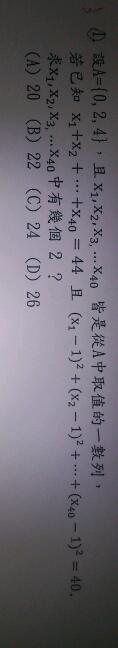 ① 設A={0, 2, 4}，且 x₁,x₂,x₃,…x₄₀ 皆是從A中取值的一數列，
若已知 x₁+x₂+⋯+x₄₀ = 44 且 (x₁ − 1)² + (x₂ − 1)² + ⋯ + (x₄₀ − 1)² = 40.
求x₁,x₂,x₃,…x₄₀中有幾個 2 ?
(A) 20 (B) 22 (C) 24 (D) 26